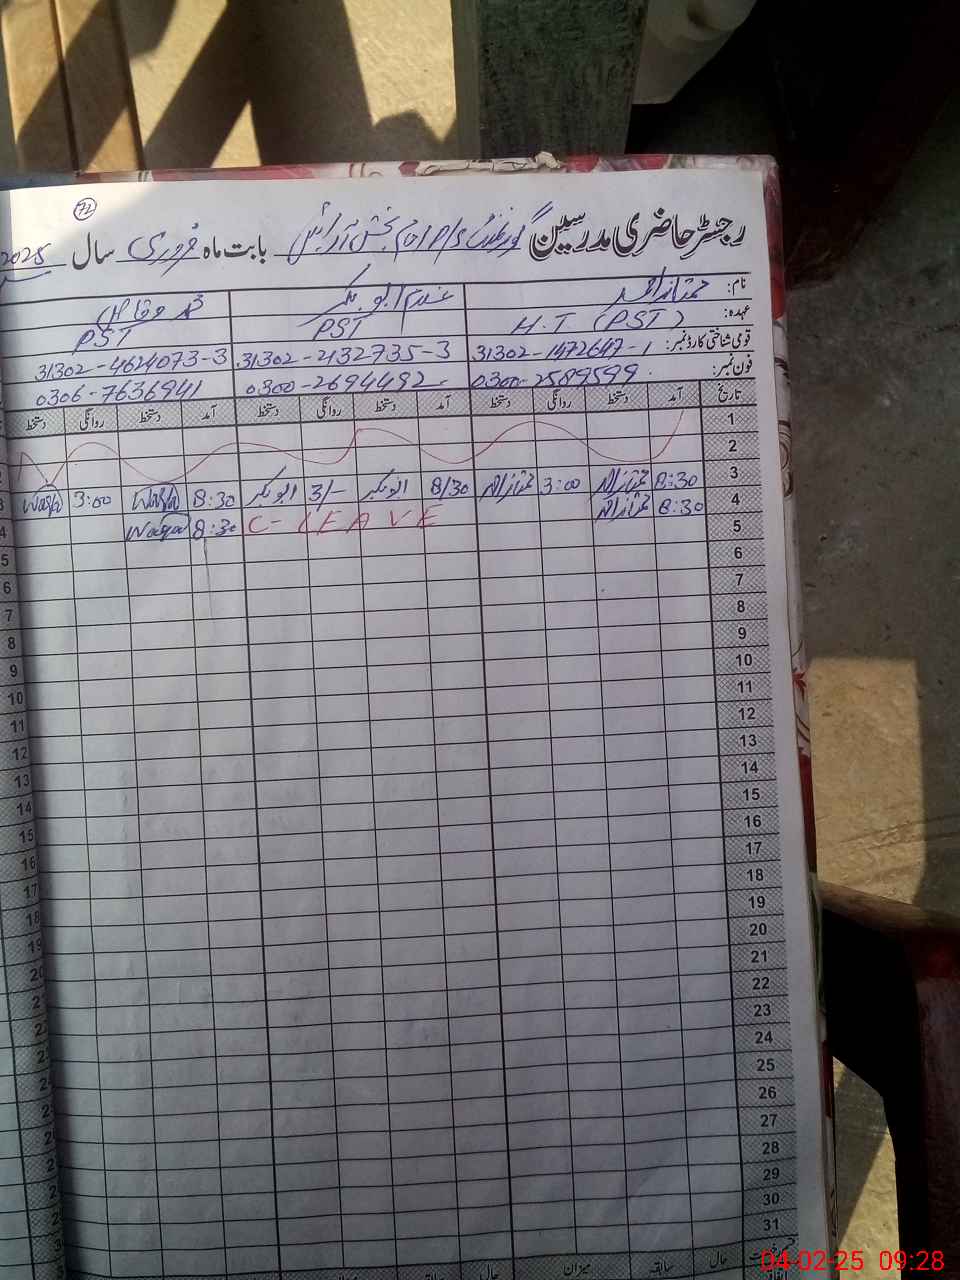 72
رجسٹر حاضری مدرسین گورنمنٹ بابت ماہ فروری سال 2025
نام:
عہدہ: H.T (PST) PST PST
قومی شناختی کارڈ نمبر: 31302-1472647-1 31302-2132735-3 31302-4624073-3
فون نمبر: 0300-2589599 0300-2694492 0306-7636941
تاریخ آمد دستخط روانگی دستخط آمد دستخط روانگی دستخط آمد دستخط روانگی دستخط
1
2
3 8:30 3:00 8/30 ابوبکر 3/- ابوبکر 8:30 Waqas 3:00 Waqas
4 8:30 C-LEAVE 8:30 Waqas
5
6
7
8
9
10
11
12
13
14
15
16
17
18
19
20
21
22
23
24
25
26
27
28
29
30
31
حال سابقہ میزان حال
04-02-25 09:28